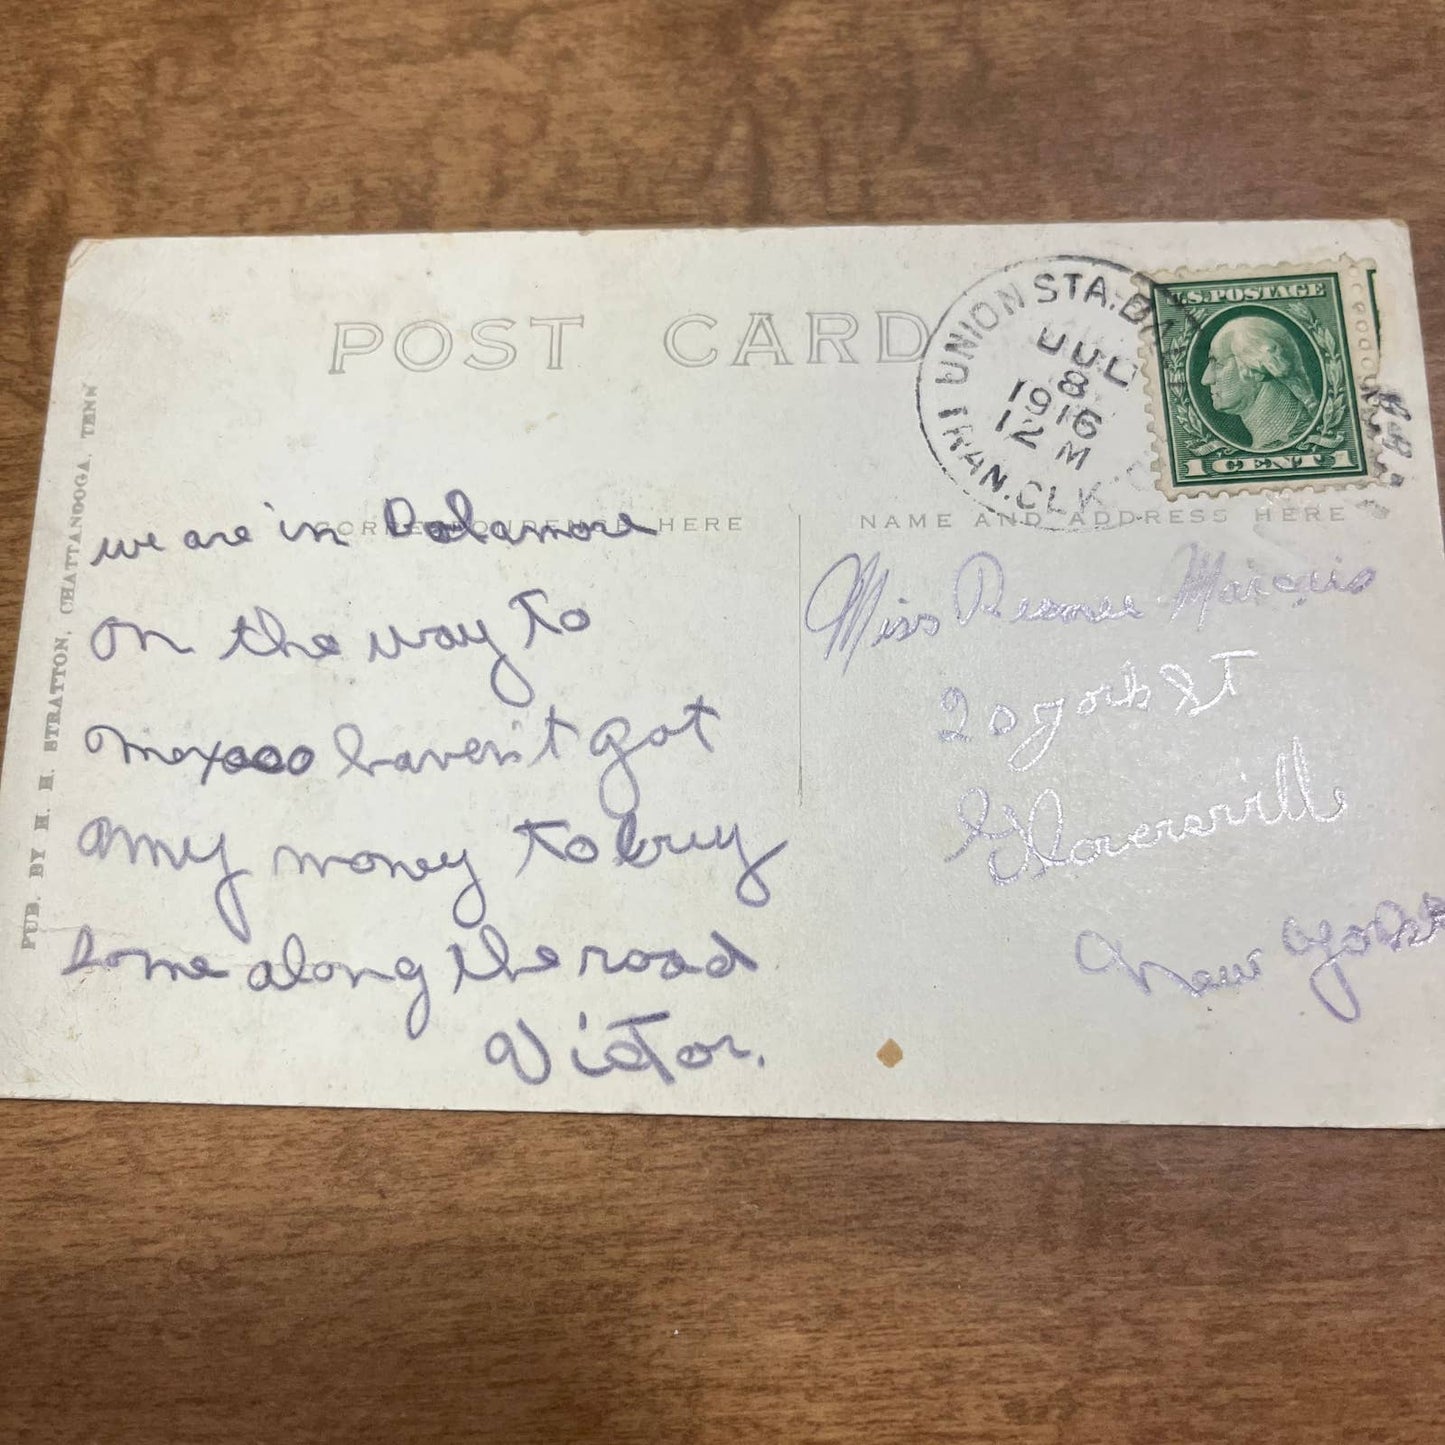 POST CARD
UNION STA. BA
JUL
8
1916
12 M
TRAN. CLK.
U.S. POSTAGE
1 CENT 1
PUB. BY H. H. STRATTON, CHATTANOOGA, TENN
CORRESPONDENCE HERE
we are in Dalamore
on the way to
mexaco haven't got
amy money to buy
some along the road
Victor.
NAME AND ADDRESS HERE
Miss Marcuis
20 york ST
Gloversvill
New york